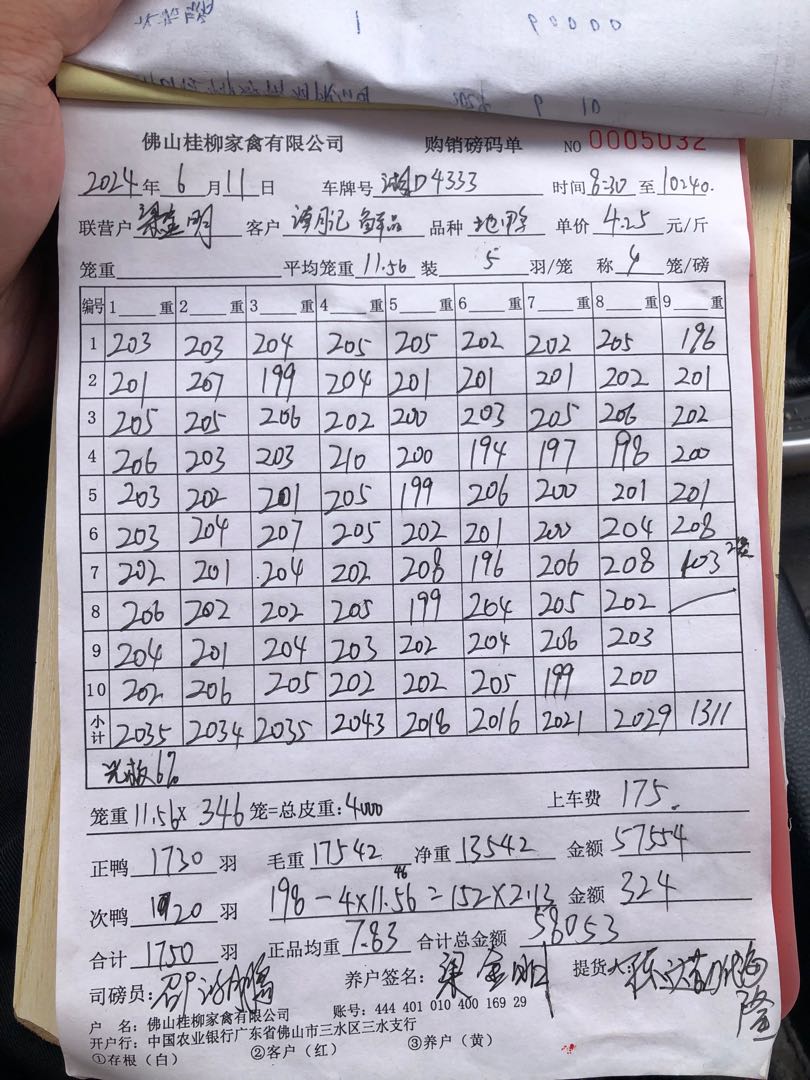 90000
1
佛山桂柳家禽有限公司 购销磅码单 NO 0005032
2024年 6 月 11 日 车牌号 D4333 时间 8:30 至 10:40.
联营户 梁金明 客户 品种 单价 4.25 元/斤
笼重 平均笼重 11.56 装 5 羽/笼 称 4 笼/磅
编号 1 重 2 重 3 重 4 重 5 重 6 重 7 重 8 重 9 重
1 203 203 204 205 205 202 202 205 196
2 201 207 199 204 201 201 201 202 201
3 205 205 206 202 200 203 205 206 202
4 206 203 203 210 200 194 197 198 200
5 203 202 201 205 199 206 200 201 201
6 203 204 207 205 202 201 200 204 208
7 202 201 204 202 208 196 206 208 103
8 206 202 202 205 199 204 205 202
9 204 201 204 203 202 204 206 203
10 202 206 205 202 202 205 199 200
小计 2035 2034 2035 2043 2018 2016 2021 2029 1311
6%
笼重 11.56 x 346 笼=总皮重: 4000 上车费 175.
正鸭 1730 羽 毛重 17542 净重 13542 金额 57554
46
次鸭 20 羽 198 - 4 x 11.56 = 152 x 2.13 金额 324
合计 1750 羽 正品均重 7.83 合计总金额 58053
司磅员: 养户签名: 梁金明 提货人:
户 名: 佛山桂柳家禽有限公司 账号: 444 401 010 400 169 29
开户行: 中国农业银行广东省佛山市三水区三水支行
①存根(白) ②客户(红) ③养户(黄)